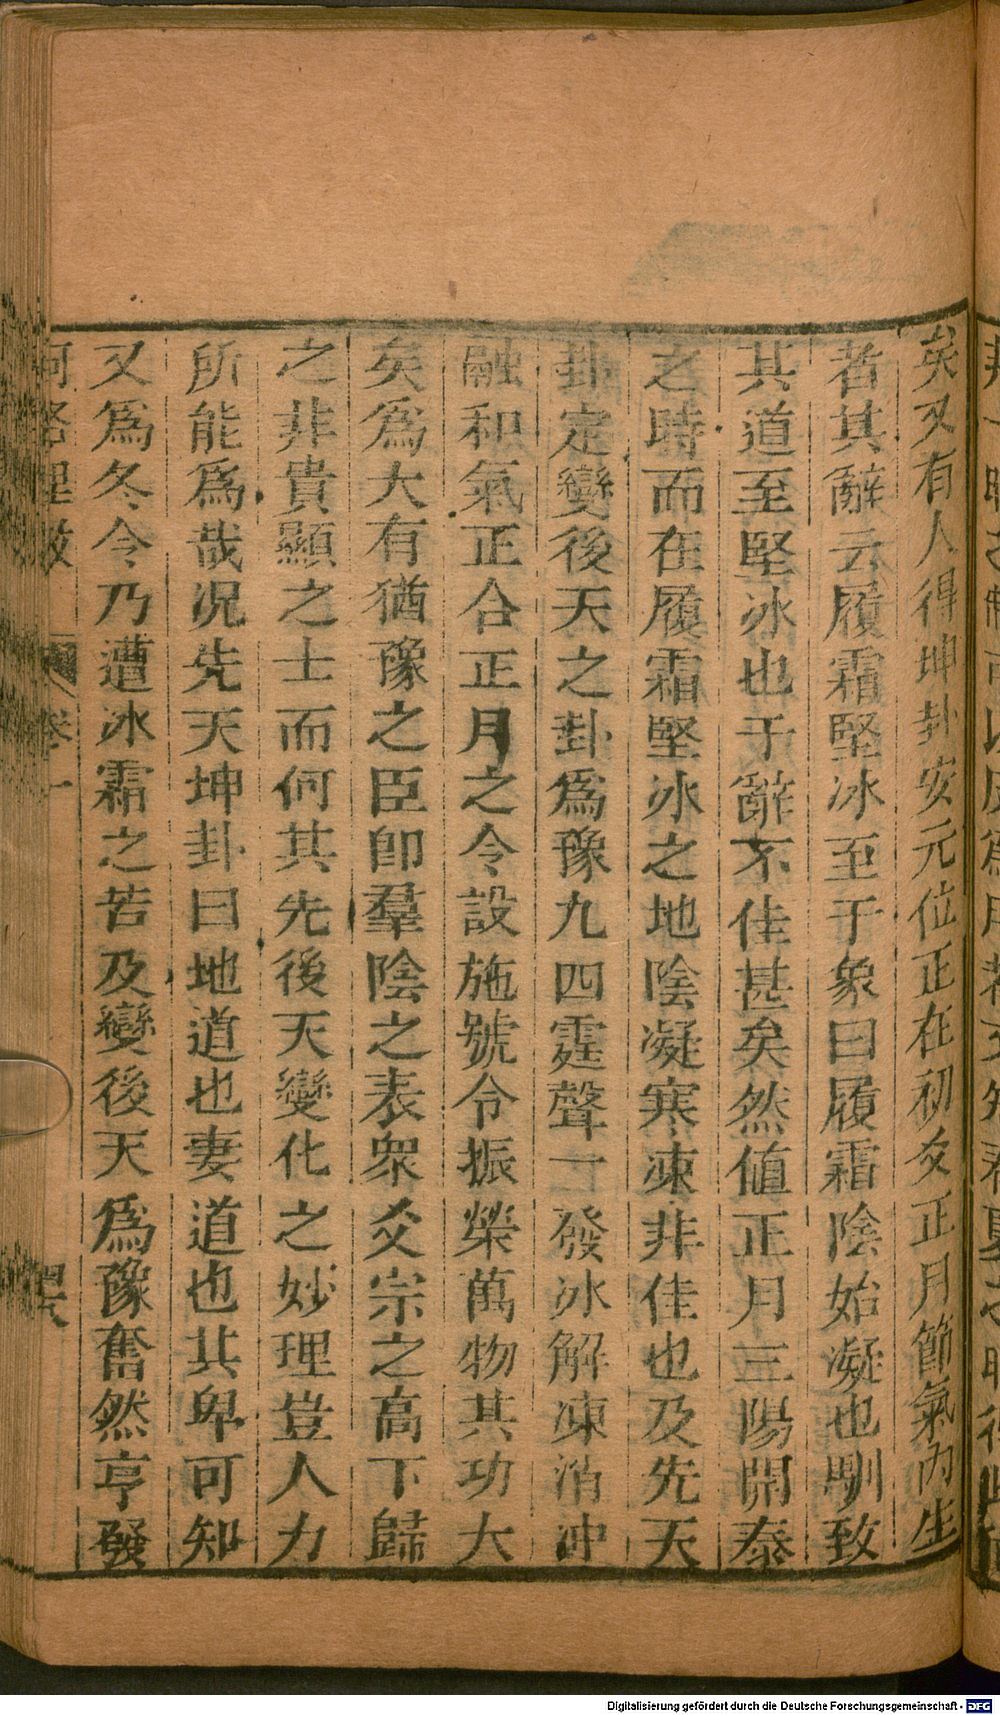 矣又有人得坤卦安元位正在初爻正月節氣內生
者其辭云履霜堅冰至于象曰履霜陰始凝也馴致
其道至堅冰也于辭不佳甚矣然值正月三陽開泰
之時而在履霜堅冰之地陰凝寒凍非佳也及先天
卦定變後天之卦爲豫九四霆聲一發冰解凍消沖
融和氣正合正月之令設施號令振榮萬物其功大
矣爲大有猶豫之臣卽羣陰之表衆爻宗之高下歸
之非貴顯之士而何其先後天變化之妙理豈人力
所能爲哉況先天坤卦曰地道也妻道也其卑可知
又爲冬令乃遭冰霜之苦及變後天爲豫奮然亨發
河洛理數 卷一
Digitalisierung gefördert durch die Deutsche Forschungsgemeinschaft - DFG